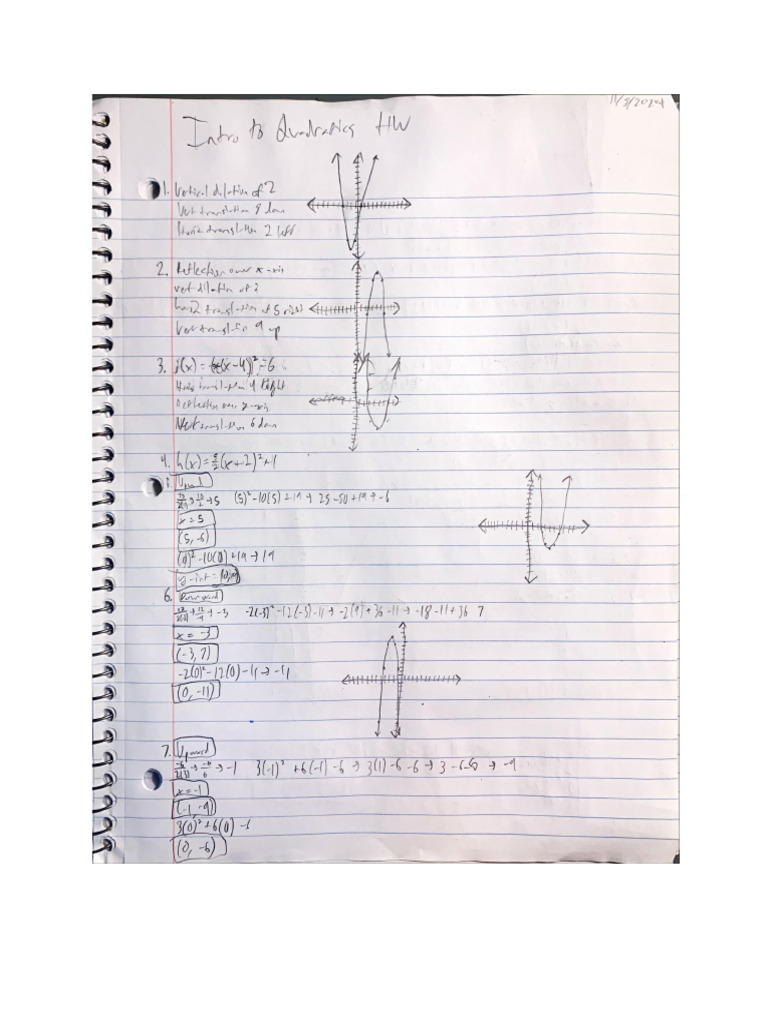 11/8/2024
Intro to Quadratics HW
1. Vertical dilation of 2
Vert translation 9 down
Horiz translation 2 left
2. Reflection over x-axis
vert dilation of 2
horiz translation of 5 right
Vert translation 9 up
3. j(x) = (x-4)² -6
Horiz translation 4 Right
Reflection over x-axis
Vert translation 6 down
4. h(x) = (x+2)² +1
Upward
→ 5 (5)² -10(5) +19 → 25 -50 +19 → -6
x = 5
(5, -6)
(0)² -10(0) +19 → 19
y-int =
6. Downward
→ -3 -2(-3)² -12(-3) -11 → -2(9) + 36 -11 → -18 -11 +36 7
x = -3
(-3, 7)
-2(0)² -12(0) -11 → -11
(0, -11)
7. Upward
-6/2(3) → -6/6 → -1 3(-1)² +6(-1) -6 → 3(1) -6 -6 → 3 -6 -6 → -9
x = -1
(-1, -9)
3(0)² +6(0) -6
(0, -6)